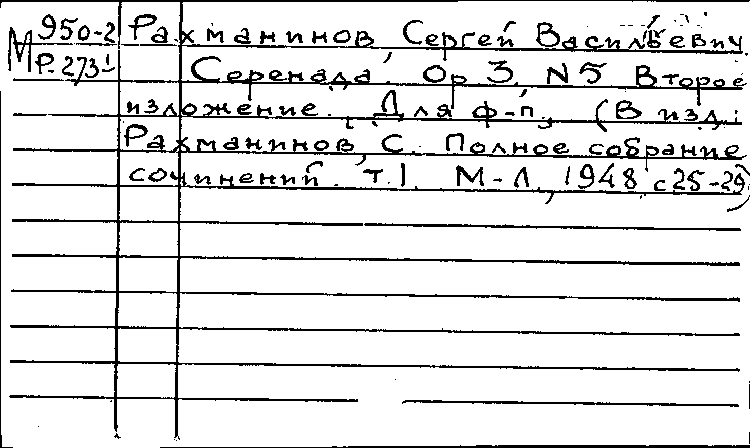 М 950-2
Р-273¹
Рахманинов, Сергей Васильевич.
Серенада. Ор 3. N5 Второе
изложение. Для ф-п. (В изд:
Рахманинов, С. Полное собрание
сочинений. т.1. М-Л, 1948 с25-29)